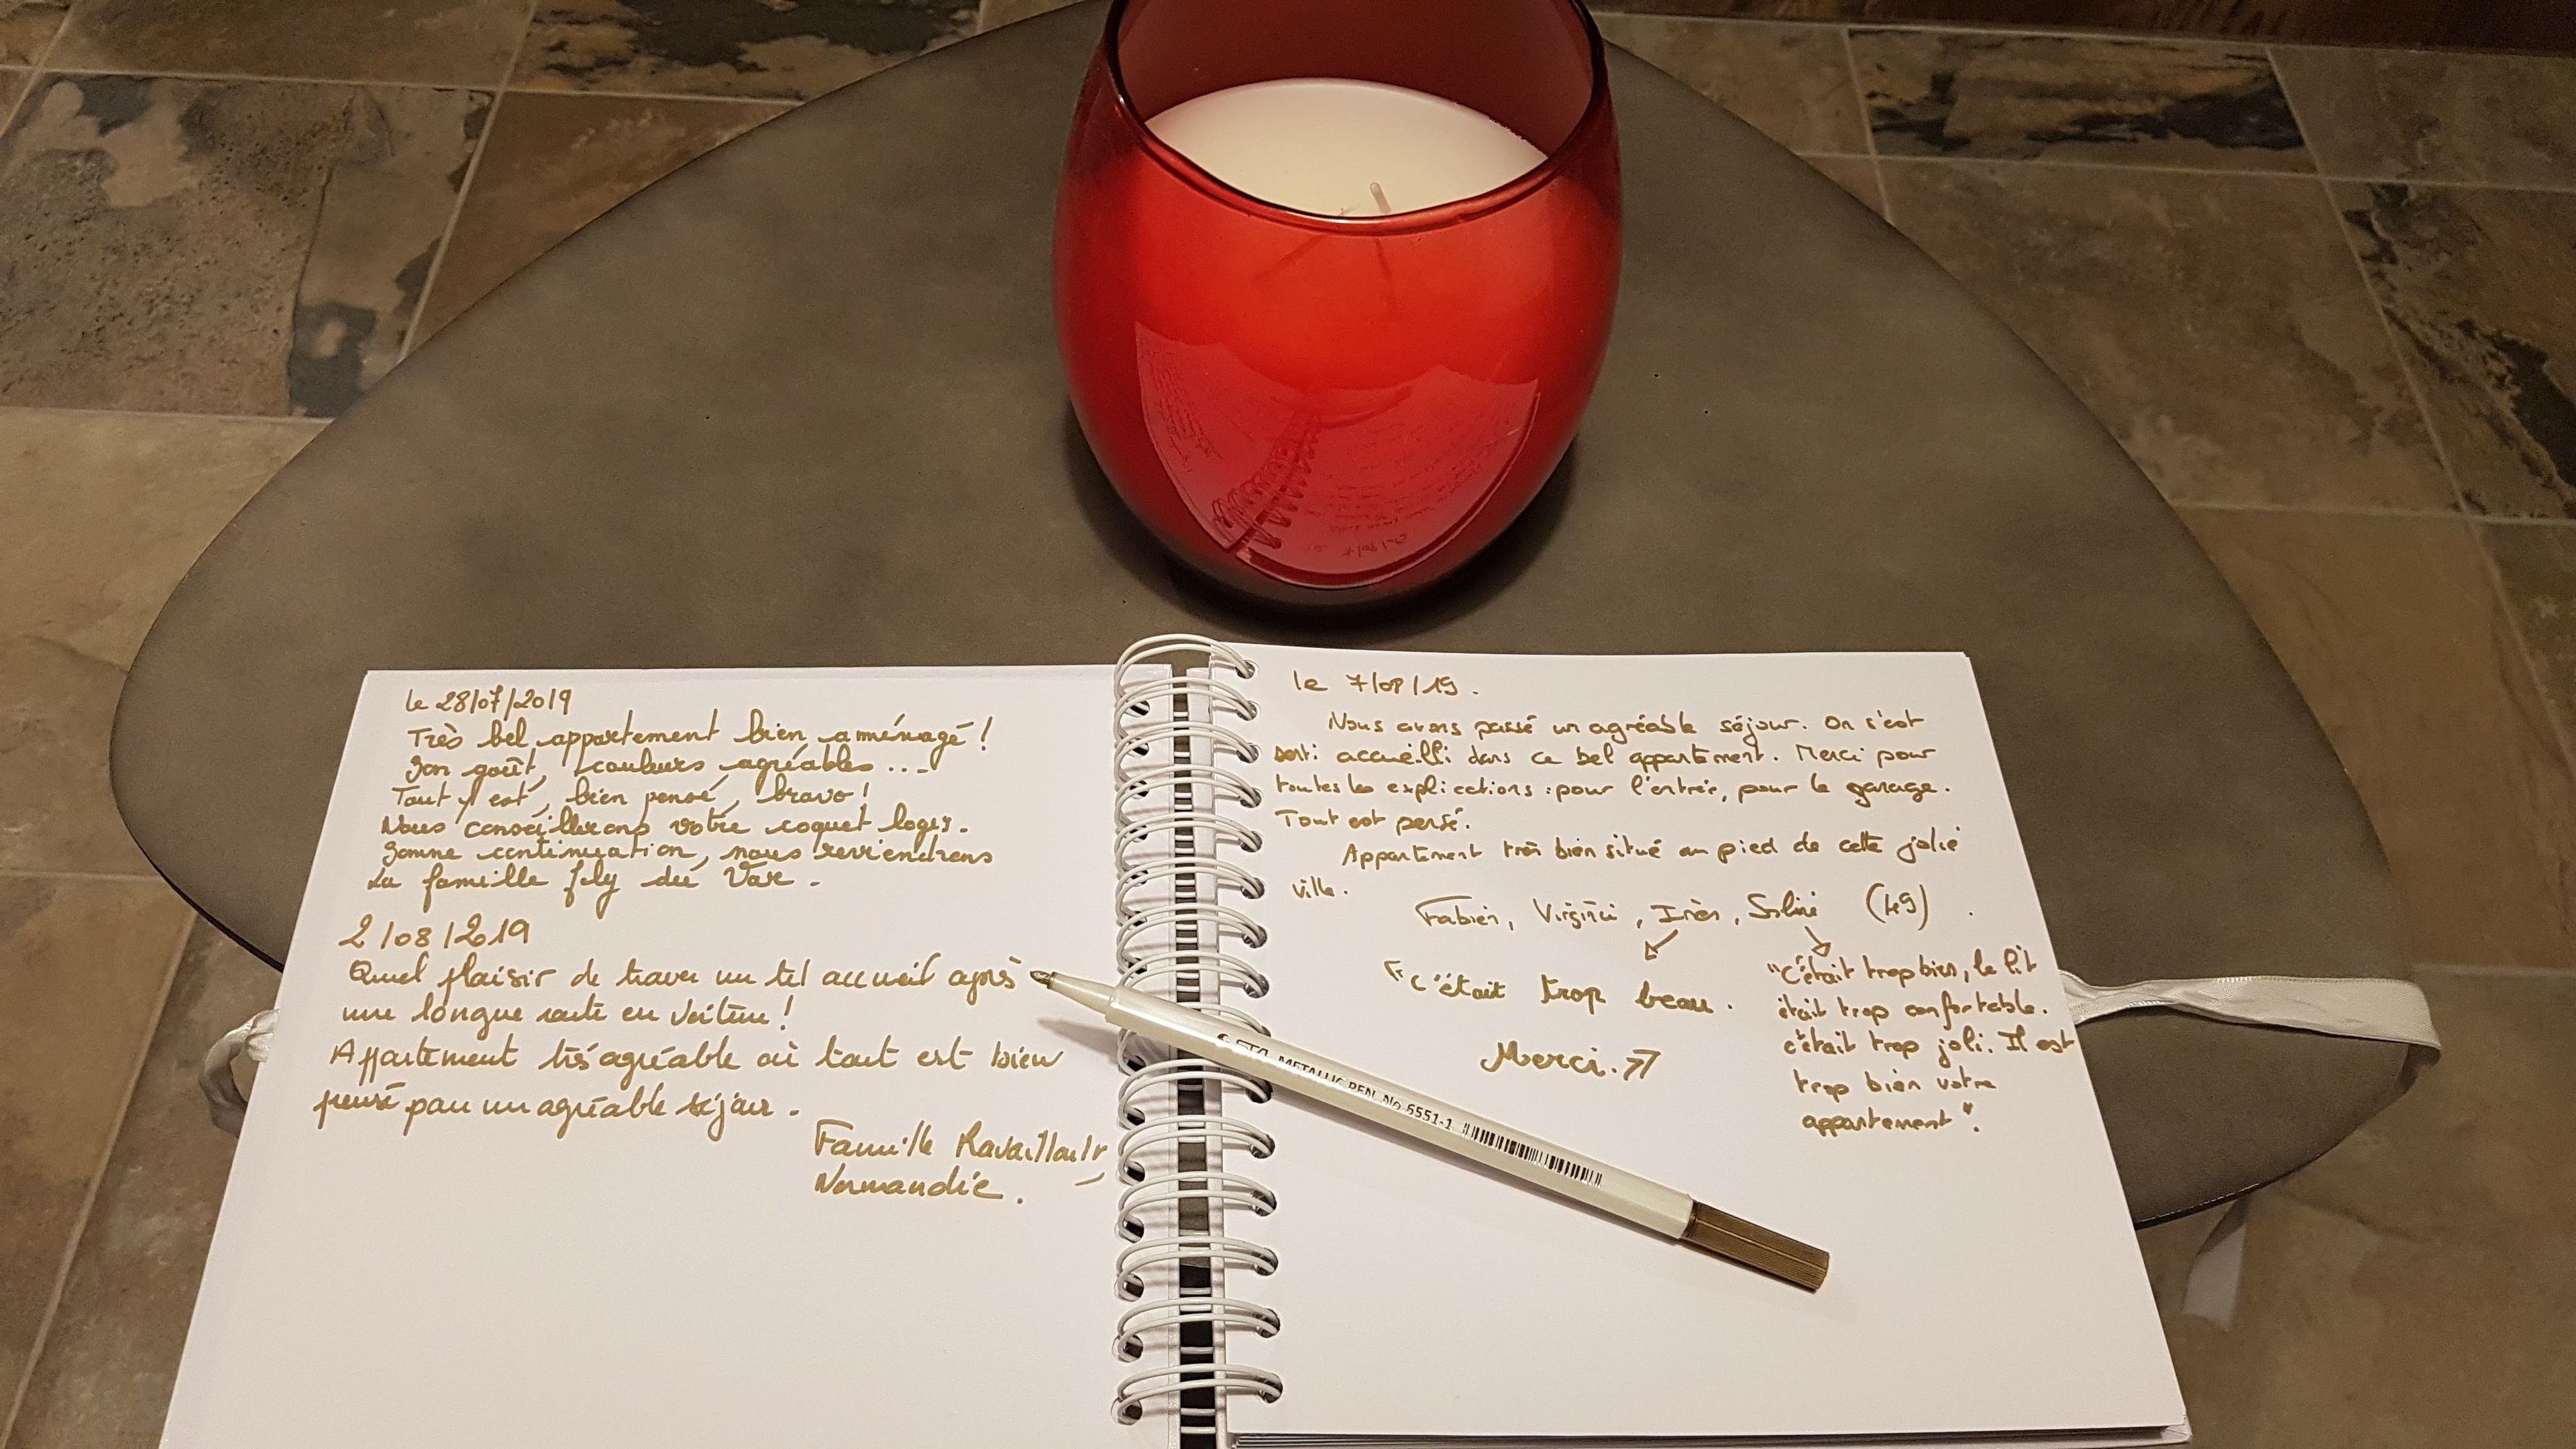 le 28/07/2019
Très bel appartement bien aménagé !
Bon goût, couleurs agréables ...
Tout y est, bien pensé, bravo !
Nous conseillerons votre coquet logis.
Bonne continuation, nous reviendrons
La famille du Var.
2/08/2019
Quel plaisir de trouver un tel accueil après
une longue route en voiture !
Appartement très agréable où tout est bien
pensé pour un agréable séjour.
Famille
Normandie.
le 7/08/19.
Nous avons passé un agréable séjour. On s'est
senti accueilli dans ce bel appartement. Merci pour
toutes les explications : pour l'entrée, pour le garage.
Tout est pensé.
Appartement très bien situé au pied de cette jolie
ville.
Fabien, Virginie, Inès, Soline (49)
"C'était trop beau.
Merci."
"C'était trop bien, le lit
était trop confortable.
c'était trop joli. Il est
trop bien votre
appartement".
STA METALLIC PEN No 6551-1